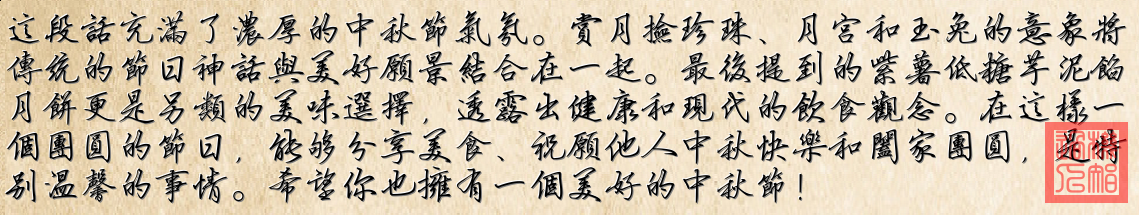 這段話充滿了濃厚的中秋節氣氛。賞月撿珍珠、月宮和玉兔的意象將
傳統的節日神話與美好願景結合在一起。最後提到的紫薯低糖芋泥餡
月餅更是另類的美味選擇，透露出健康和現代的飲食觀念。在這樣一
個團圓的節日，能夠分享美食、祝願他人中秋快樂和闔家團圓，是特
別溫馨的事情。希望你也擁有一個美好的中秋節！